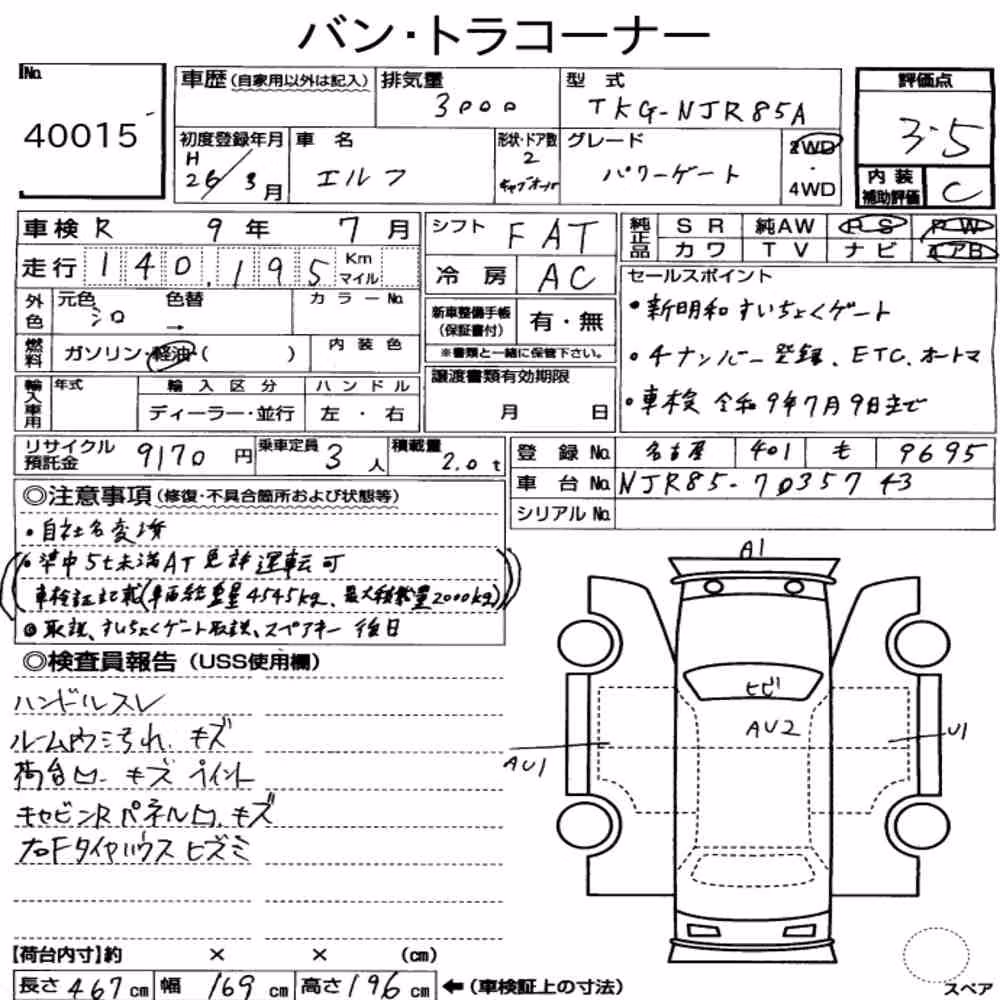 バン・トラコーナー
No. 40015
車歴(自家用以外は記入)
排気量 3000
型式 TKG-NJR85A
評価点 3.5
初度登録年月 H 26/3月
車名 エルフ
形状・ドア数 2 キャブオーバ
グレード パワーゲート
2WD・4WD
内装補助評価 C
車検 R 9年 7月
シフト FAT
純正品 SR 純AW PS PW
カワ TV ナビ エアB
走行 140,195 Km マイル
冷房 AC
セールスポイント
・新明和すいちょくゲート
外色 元色 シロ 色替 → カラーNo.
新車整備手帳(保証書付) 有・無
※書類と一緒に保管下さい。
・4ナンバー登録、ETC、オートマ
燃料 ガソリン・軽油・( ) 内装色
譲渡書類有効期限
月 日
・車検 令和9年7月9日まで
輸入車用 年式 輸入区分 ハンドル
ディーラー・並行 左・右
リサイクル預託金 9170円 乗車定員 3人 積載量 2.0t
登録No. 名古屋 401 も 9695
車台No. NJR85-7035743
シリアルNo.
◎注意事項(修復・不具合箇所および状態等)
・自社名変済
◎準中5t未満AT免許運転可
車検証記載(車両総重量4545kg、最大積載量2000kg)
◎取説、すいちょくゲート取説、スペアキー後日
◎検査員報告(USS使用欄)
ハンドルスレ
ルーム内ミヨゴれ、キズ
荷台凹、キズ ペイント
キャビンRパネル凹、キズ
右Fタイヤハウスヒズミ
A1
ヒビ
AU2
AU1
U1
【荷台内寸】約 × × (cm)
長さ467cm 幅169cm 高さ196cm ←(車検証上の寸法)
スペア